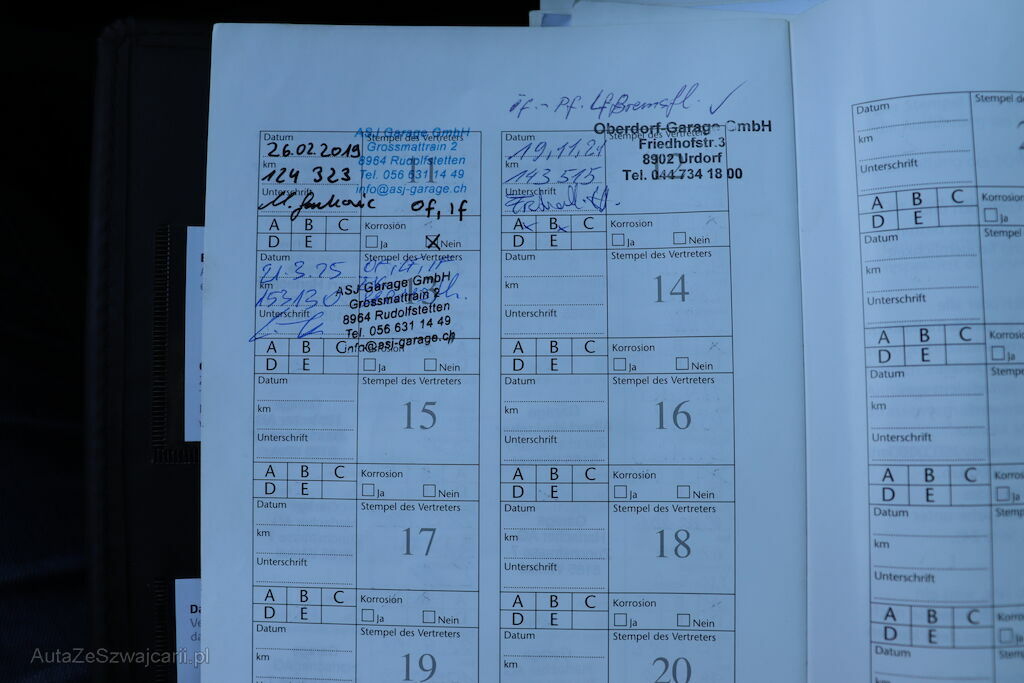 Öf. - Pf. Lf Bremsfl. ✓
Datum
26.02.2019
km
124 323
Unterschrift
Stempel des Vertreters
11
ASJ Garage GmbH
Grossmattrain 2
8964 Rudolfstetten
Tel. 056 631 14 49
info@asj-garage.ch
Öf, If
A B C
D E
Korrosion
Ja Nein
Datum
19,11,21
km
143 515
Unterschrift
Stempel des Vertreters
12
Oberdorf-Garage GmbH
Friedhofstr.3
8902 Urdorf
Tel. 044 734 18 00
A B C
D E
Korrosion
Ja Nein
21.3.25
km
153130
Unterschrift
Stempel des Vertreters
ASJ Garage GmbH
Grossmattrain 2
8964 Rudolfstetten
Tel. 056 631 14 49
info@asj-garage.ch
A B C
D E
Korrosion
Ja Nein
Datum
km
Unterschrift
Stempel des Vertreters
14
A B C
D E
Korrosion
Ja Nein
Datum
km
Unterschrift
Stempel des Vertreters
15
A B C
D E
Korrosion
Ja Nein
Datum
km
Unterschrift
Stempel des Vertreters
16
A B C
D E
Korrosion
Ja Nein
Datum
km
Unterschrift
Stempel des Vertreters
17
A B C
D E
Korrosion
Ja Nein
Datum
km
Unterschrift
Stempel des Vertreters
18
A B C
D E
Korrosion
Ja Nein
Datum
km
Stempel des Vertreters
19
Datum
km
Stempel des Vertreters
20
Datum
km
Unterschrift
Stempel
A B C
D E
Korrosion
Ja
Datum
km
Unterschrift
Stempel
A B C
D E
Ja
Datum
km
Unterschrift
A B C
D E
Ja
Datum
km
Unterschrift
A B C
D E
Ja
Datum
km
AutaZeSzwajcarii.pl